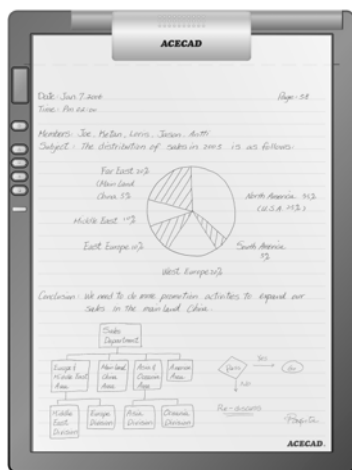 ACECAD
Date: Jan. 7. 2006
Page: 58
Time: Pm
Members: Joe, Ketan, Loris, Jason, Antti
Subject: The distribution of sales in 2005 is as follows:
Far East 20%
(Main Land
China 5%
North America
(U.S.A.
Middle East
East Europe 20%
South America
5%
West Europe 20%
Conclusion: We need to do more promotion activities to expand our
sales in the main land China.
Sales
Department
Europe &
Middle East
Area
Main land
China
Area
Asia &
Oceania
Area
America
Area
Pass
Yes
Go
No
Middle
East
Division
Europe
Division
Asia
Division
Oceania
Division
Re-discuss
ACECAD.